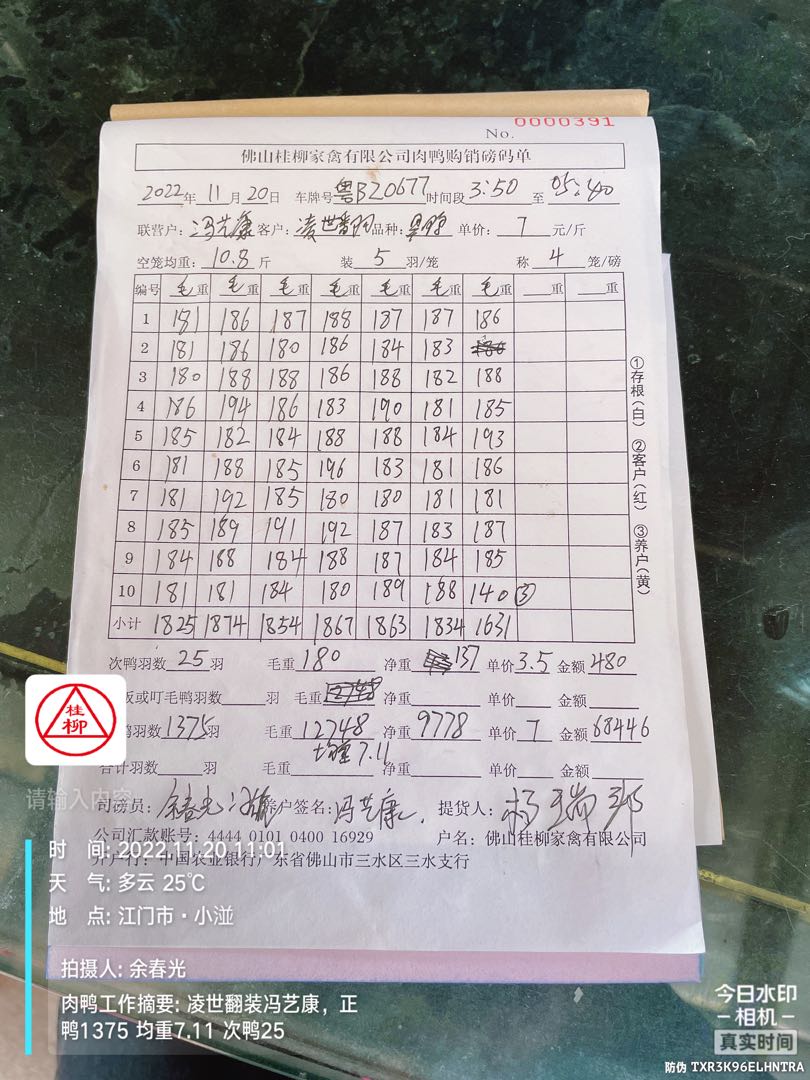 No. 0000391
佛山桂柳家禽有限公司肉鸭购销磅码单
2022年11月20日 车牌号粤BZ0677时间段3:50至05:40
联营户:冯艺康客户:凌世翻 品种: 单价:7元/斤
空笼均重:10.8斤 装5羽/笼 称4笼/磅
编号 毛重 毛重 毛重 毛重 毛重 毛重 毛重 重 重
1 181 186 187 188 187 187 186
2 181 186 180 186 184 183
3 180 188 188 186 188 182 188
4 186 194 186 183 190 181 185
5 185 182 184 188 188 184 193
6 181 188 185 196 183 181 186
7 181 192 185 180 180 181 181
8 185 189 191 192 187 183 187
9 184 188 184 188 187 184 185
10 181 181 184 180 189 188 140 ③
小计 1825 1874 1854 1867 1863 1834 1631
①存根(白) ②客户(红) ③养户(黄)
次鸭羽数25羽 毛重180 净重137 单价3.5 金额480
板或叮毛鸭羽数 羽 毛重 净重 单价 金额
鸭羽数1375羽 毛重12748 净重9778 单价7 金额68446
均重7.11
合计羽数 羽 毛重 净重 单价 金额
司磅员:余春光 养户签名:冯艺康 提货人:杨瑞
公司汇款账号:4444 0101 0400 16929 户名:佛山桂柳家禽有限公司
开户行:中国农业银行广东省佛山市三水区三水支行
桂柳
请输入内容
时 间:2022.11.20 11:01
天 气:多云 25℃
地 点:江门市·小湴
拍摄人:余春光
肉鸭工作摘要:凌世翻装冯艺康,正
鸭1375 均重7.11 次鸭25
今日水印
-相机-
真实时间
防伪 TXR3K96ELHNTRA